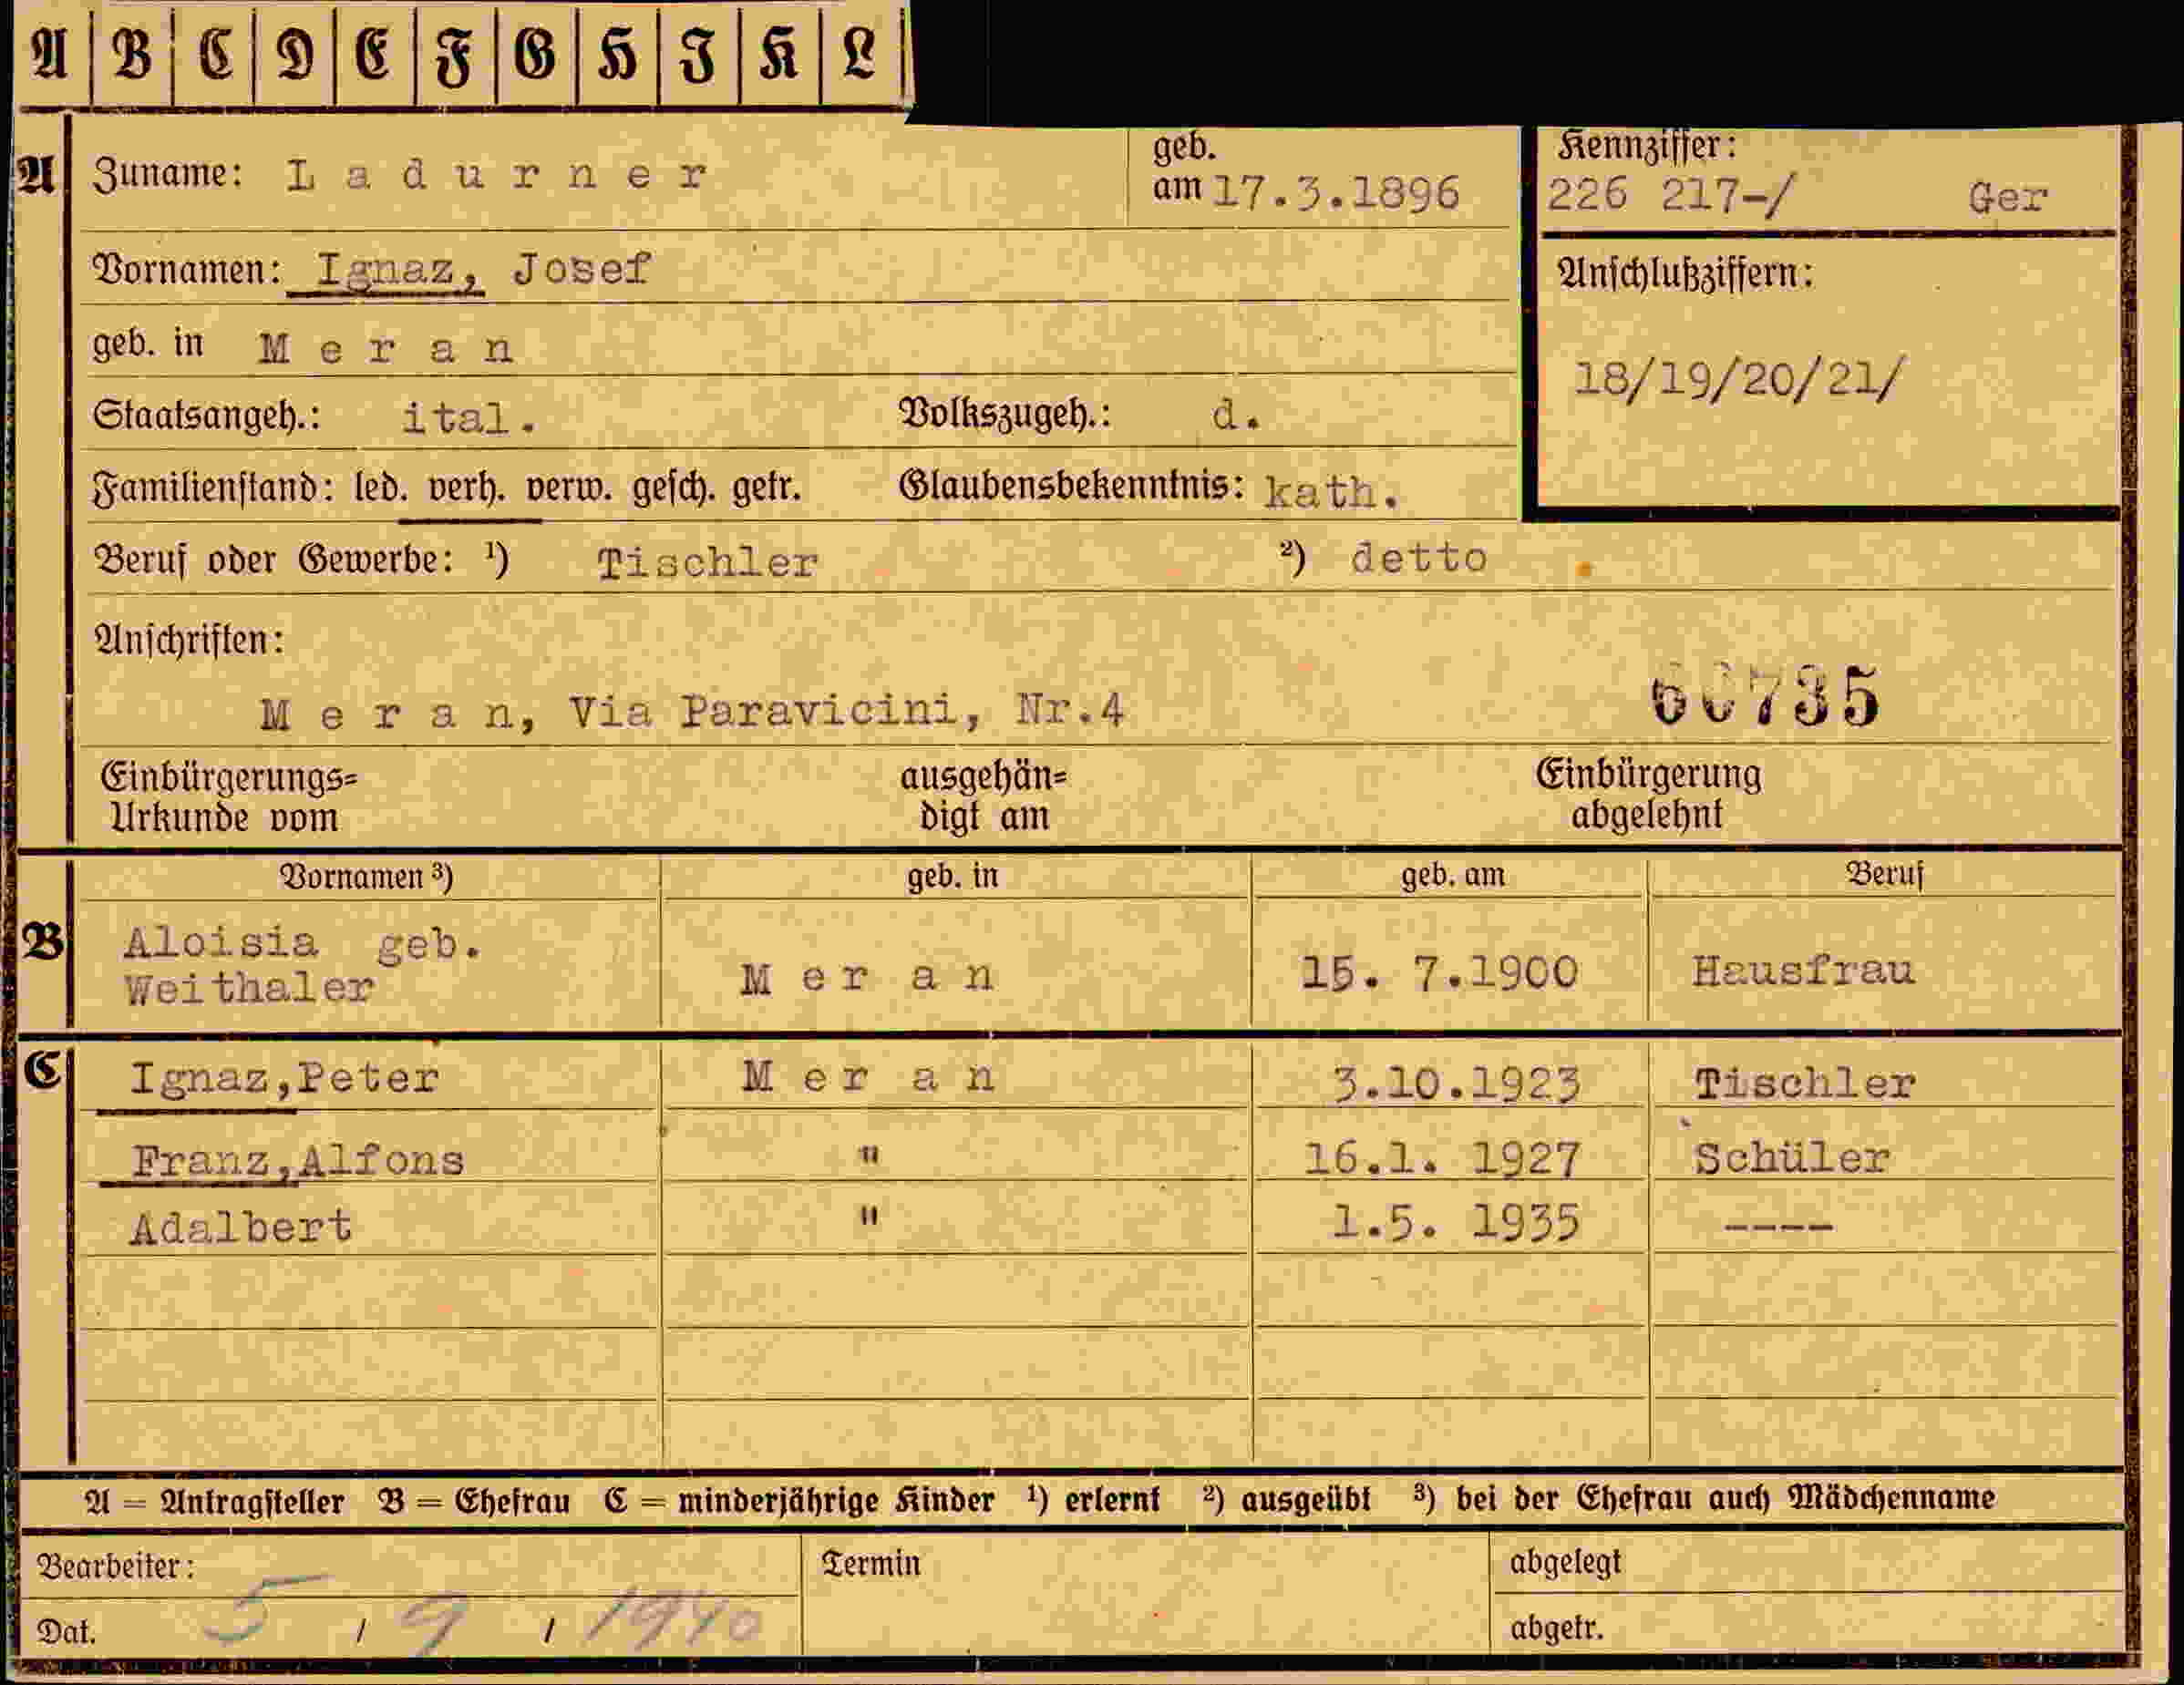 A B C D E F G H I K L
A Zuname: Ladurner geb. am 17.3.1896
Kennziffer:
226 217-/ Ger
Vornamen: Ignaz, Josef
Anschlußziffern:
18/19/20/21/
geb. in Meran
Staatsangeh.: ital. Volkszugeh.: d.
Familienstand: led. verh. verw. gesch. getr. Glaubensbekenntnis: kath.
Beruf oder Gewerbe: ¹) Tischler ²) detto
Anschriften:
Meran, Via Paravicini, Nr.4
Einbürgerungs= ausgehän= Einbürgerung
Urkunde vom digt am abgelehnt
Vornamen ³) geb. in geb. am Beruf
B Aloisia geb.
Weithaler Meran 15. 7.1900 Hausfrau
C Ignaz,Peter Meran 3.10.1923 Tischler
Franz,Alfons " 16.1. 1927 Schüler
Adalbert " 1.5. 1935 ----
A = Antragsteller B = Ehefrau C = minderjährige Kinder ¹) erlernt ²) ausgeübt ³) bei der Ehefrau auch Mädchenname
Bearbeiter: Termin abgelegt
Dat. 5 / 9 / 1940 abgetr.